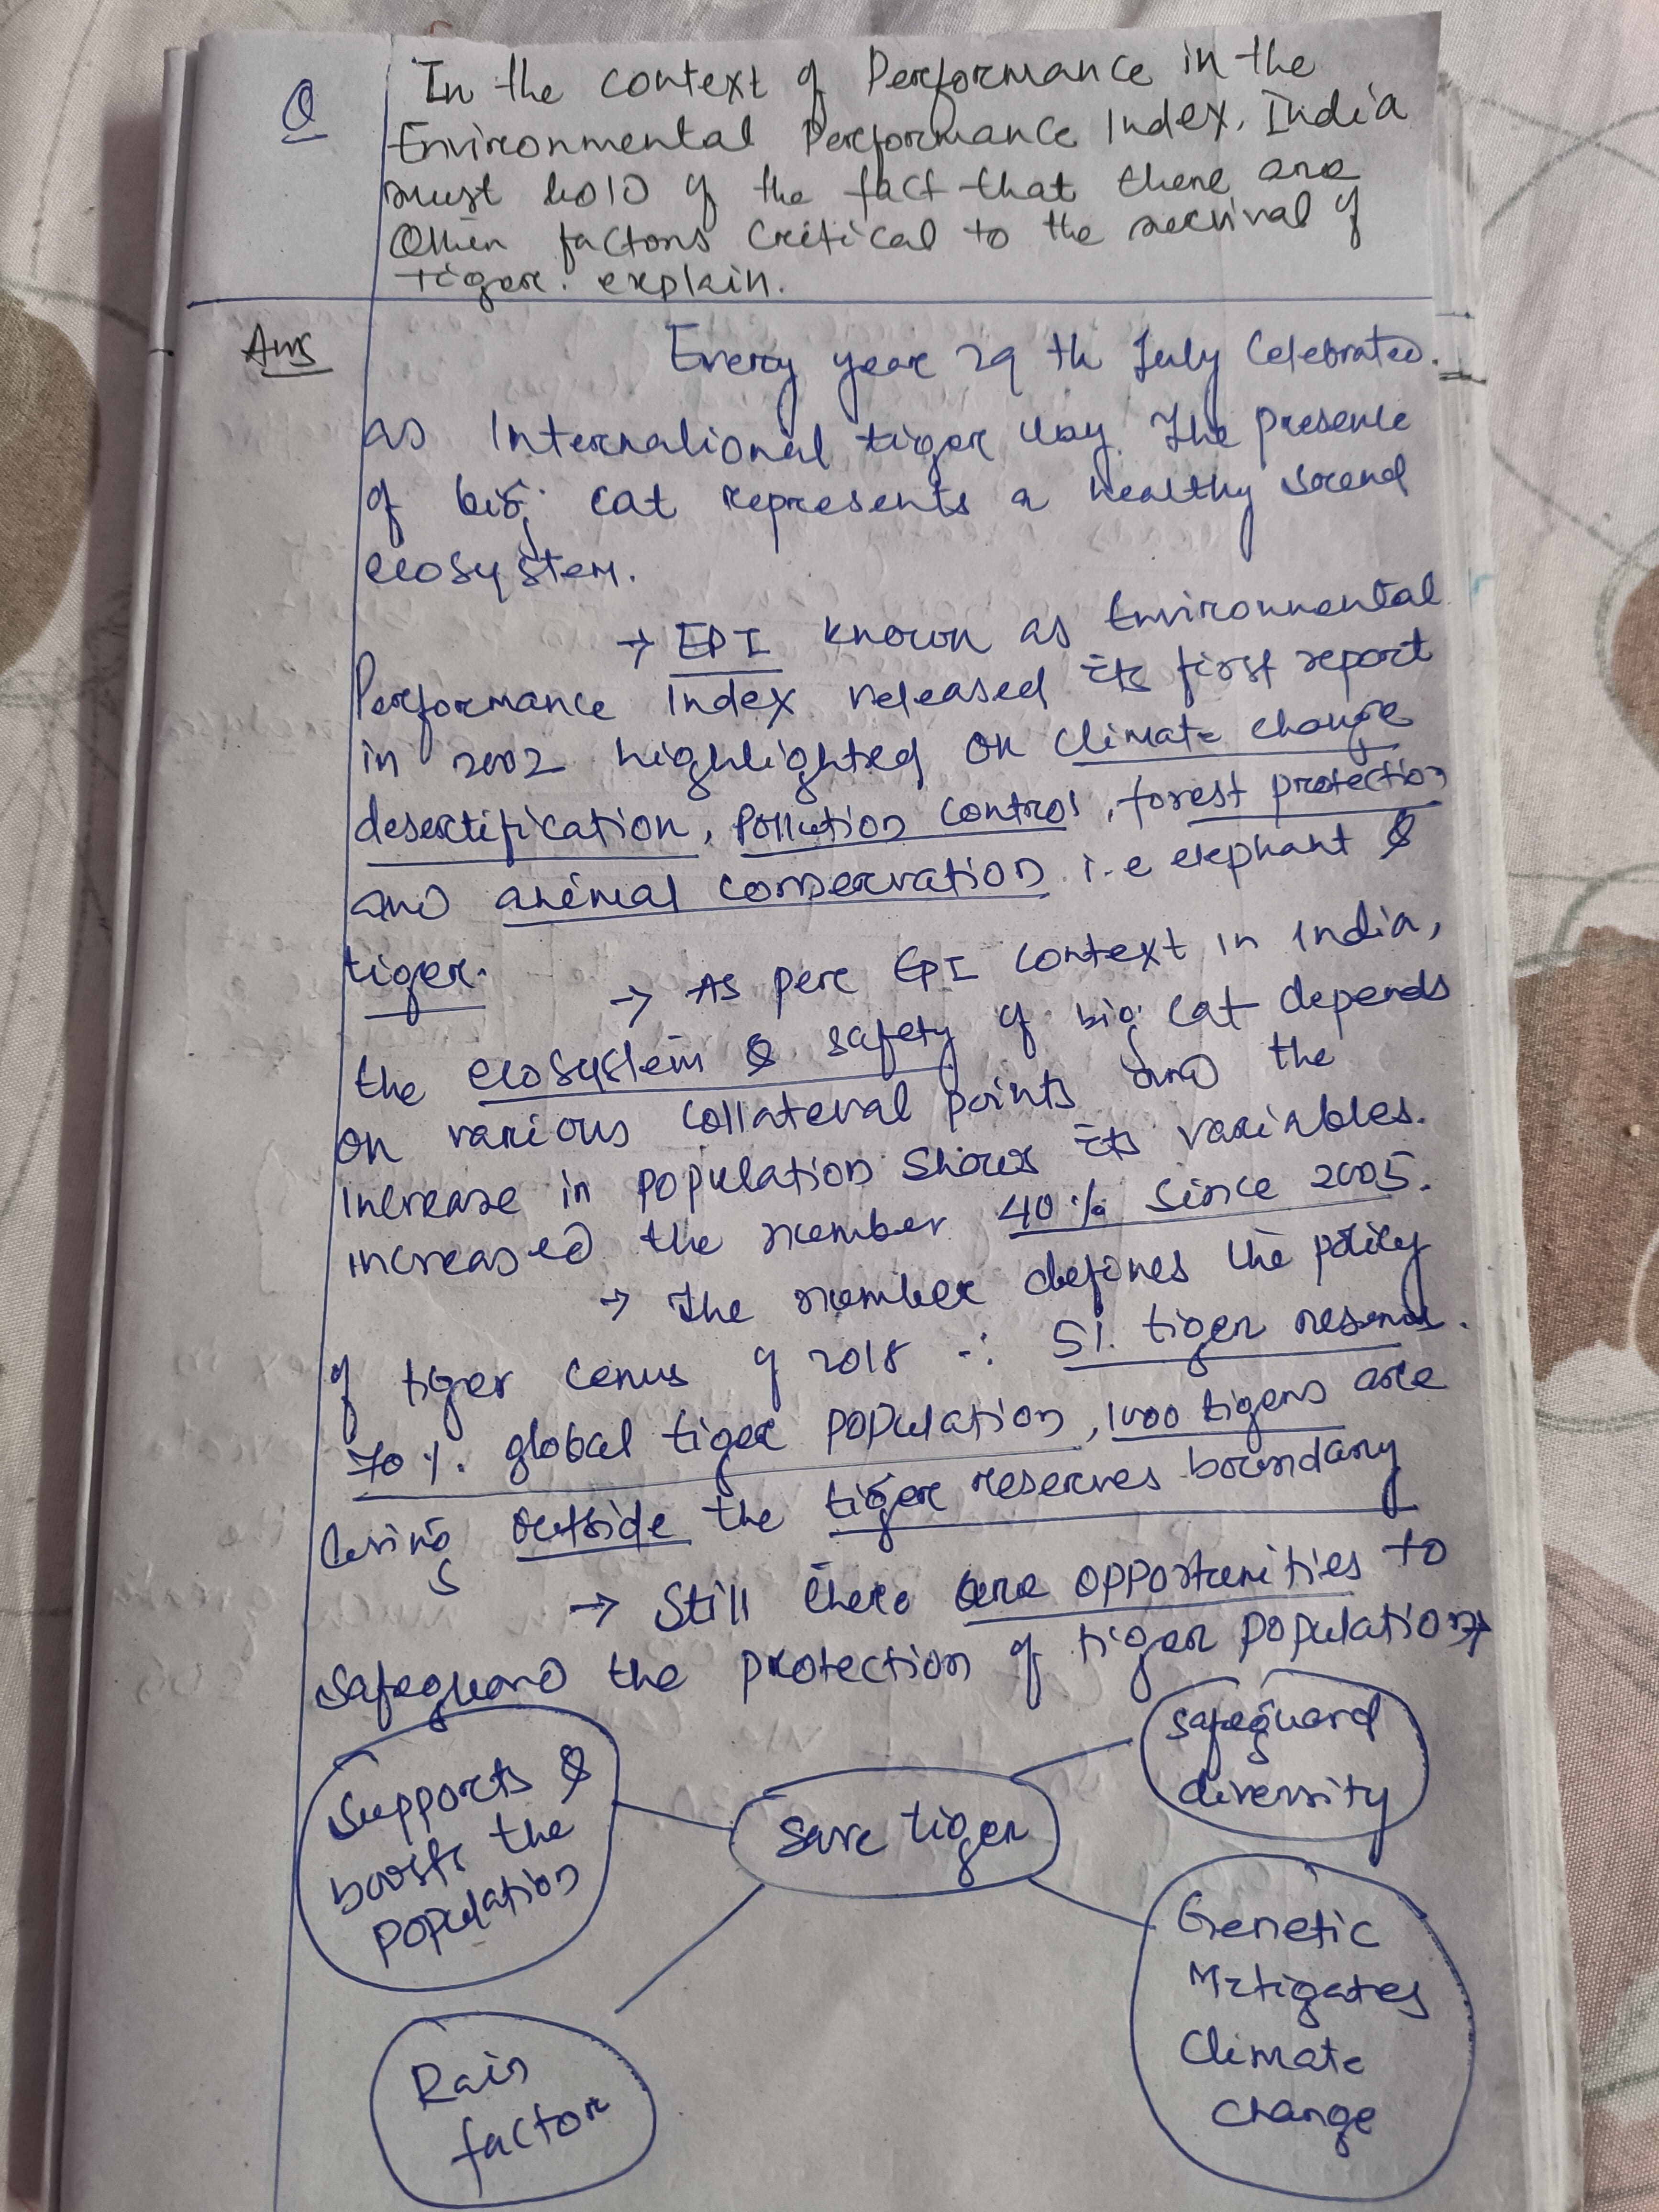 Q
In the context of Performance in the
Environmental Performance Index, India
must hold of the fact that there are
Other factors critical to the survival of
tiger. explain.
Ans
Every year 29 th July Celebrated.
as International tiger day. The presence
of big cat represents a healthy sound
ecosystem.
→ EPI known as Environmental
Performance Index released its first report
in 2002 highlighted on climate change
desertification, pollution control, forest protection
and animal conservation i.e elephant &
tiger.
→ As per EPI context in India,
the ecosystem & safety of big cat depends
on various collateral points and the
increase in population shows its variables.
increased the number 40% since 2005.
→ The number defines the policy
of tiger cenus of 2018 ∴ 51. tiger reserves.
70%. global tiger population, 1000 tigers are
living outside the tiger reserves boundary
→ Still there are opportunities to
safeguard the protection of tiger population→
Supports &
boosts the
population
Save tiger
safeguard
diversity
Genetic
Mitigates
Climate
change
Rain
factor